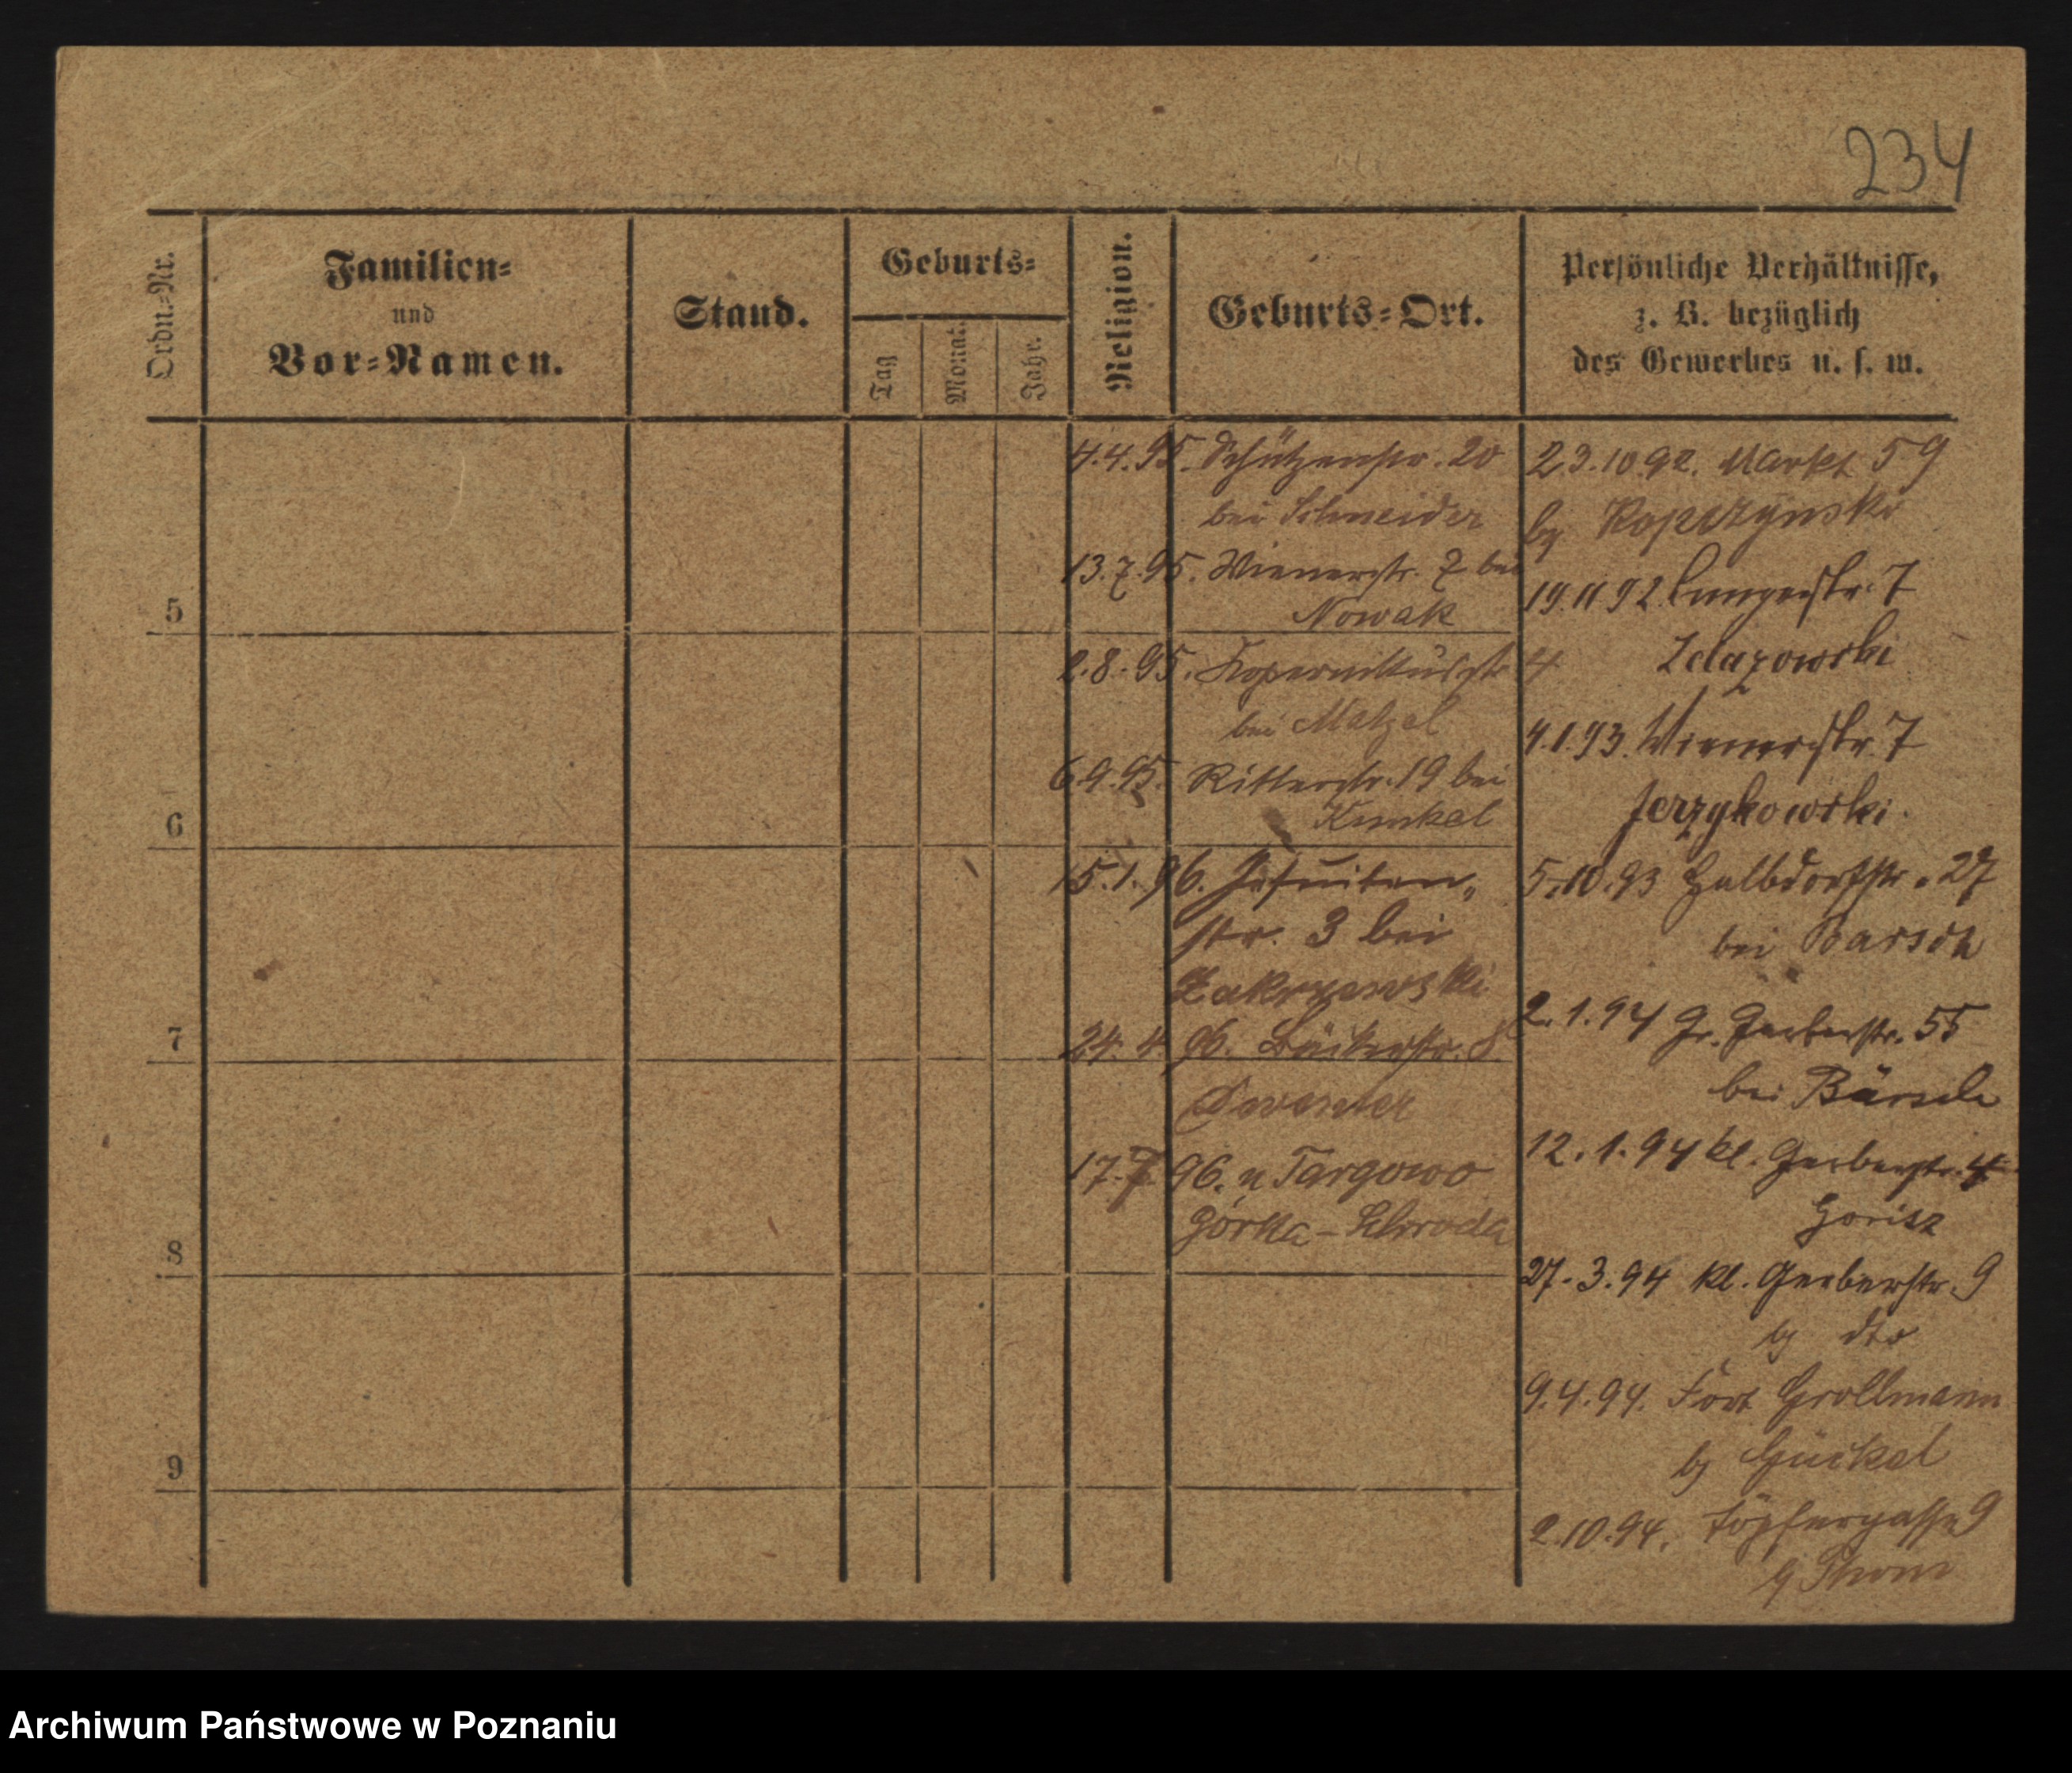 234
Ordn.-Nr.
Familien-
und
Vor-Namen.
Stand.
Geburts-
Tag
Monat.
Jahr.
Religion.
Geburts-Ort.
Persönliche Verhältnisse,
z. B. bezüglich
des Gewerbes u. s. w.
5
6
7
8
9
4.4.95. Schützenstr. 20
bei Schneider
13.7.95. Wienerstr. 7 bei
Nowak
2.8.95. Kopernikusstr 4
bei Matzel
6.9.95. Ritterstr. 19 bei
Kunkel
15.1.96. Jesuiten-
str. 3 bei
Zakrzewski
24.4.96. Bäckerstr. 8
17.7.96. n Targowo
Górka - Schroda
23.10.92. Markt 59
bj Kopczynski
19.11 92. Langestr. 7
Zelazowski
4.1.93. Wienerstr. 7
Jerzykowski.
5.10.93 Halbdorfstr. 27
bei Barsch
2.1.94 Gr. Gerberstr. 55
bei Bärsch
12.1.94 kl. Gerberstr. 4
27.3.94 Kl. Gerberstr. 9
bj dto
9.4.94. Fort Grollmann
bj Gückel
2.10.94. Töpfergasse 9
bj Thom
Archiwum Państwowe w Poznaniu